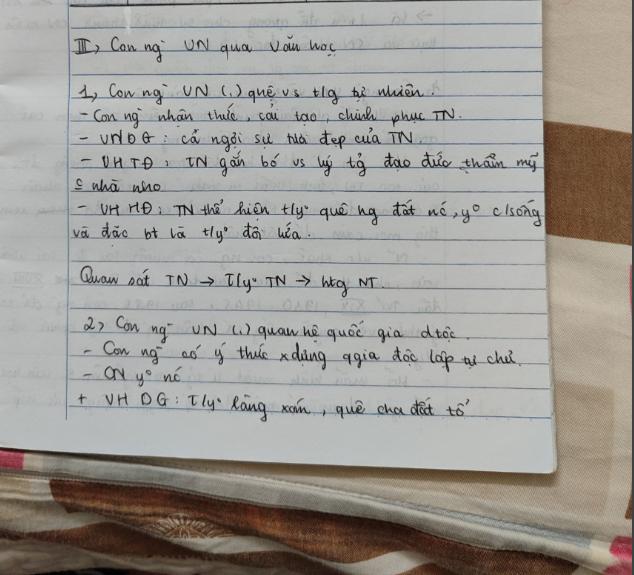 III, Con ng` VN qua Văn học
1, Con ng` VN (.) quệ vs t/g tự nhiên.
- Con ng` nhận thức, cải tạo, chinh phục TN.
- VHDG: ca ngợi sự tươi đẹp của TN
- VHTĐ: TN gắn bó vs lý tg đạo đức thẩm mỹ
c nhà nho
- VH HĐ: TN thể hiện t/y° quê hg đất nc, y° c/sống
và đặc bt là t/y° đôi lứa.
Quan sát TN → T/y° TN → htg NT
2, Con ng` VN (.) quan hệ quốc gia dtộc.
- Con ng` có ý thức xdựng qgia độc lập tự chủ.
- CN y° nc
+ VH DG: T/y° làng xóm, quê cha đất tổ